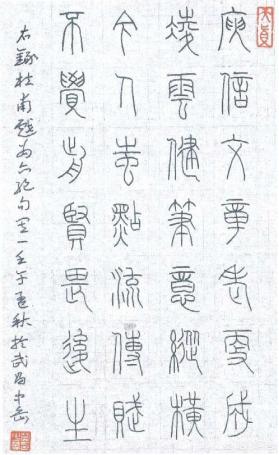 庾信文章老更成
凌雲健筆意縱橫
今人嗤點流傳賦
不覺前賢畏後生
右錄杜甫戲為六絕句之一壬午孟秋於武昌中岳